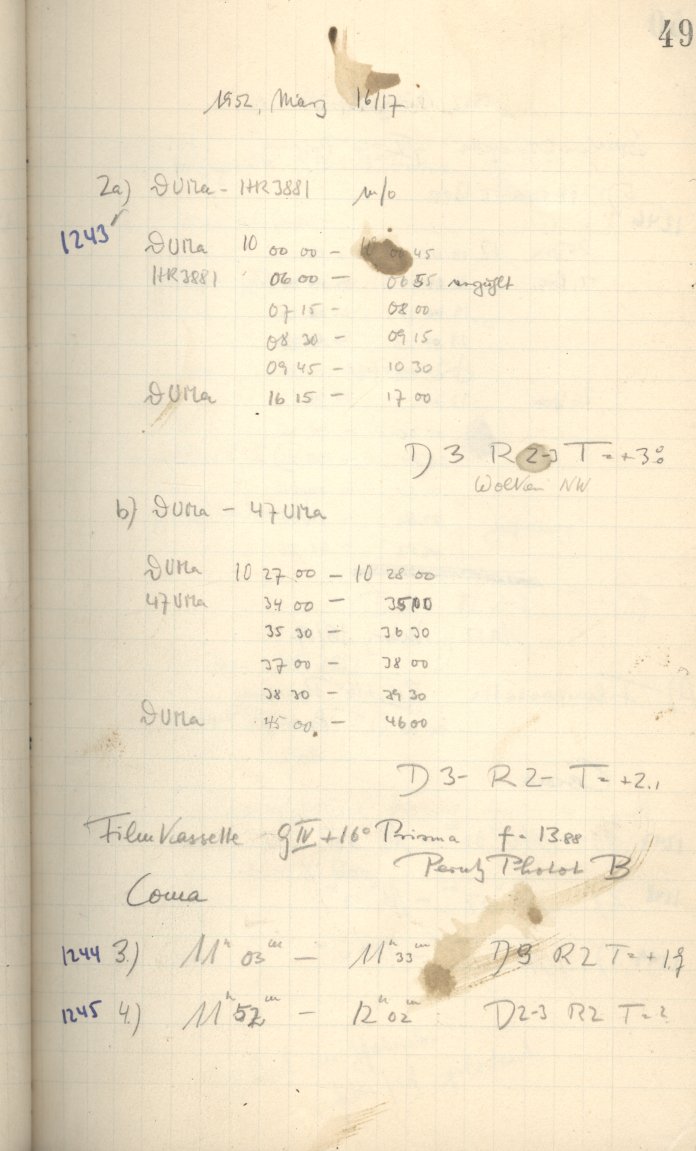 49
1952, März 16/17
2a) ϑ UMa - HR 3881 m/o
1243
ϑ UMa 10 00 00 - 00 45
HR 3881 06 00 - 06 55
07 15 - 08 00
08 30 - 09 15
09 45 - 10 30
ϑ UMa 16 15 - 17 00
D 3 R 2-3 T = +3.0
Wolken NW
b) ϑ UMa - 47 UMa
ϑ UMa 10 27 00 - 10 28 00
47 UMa 34 00 - 35 00
35 30 - 36 30
37 00 - 38 00
38 30 - 39 30
ϑ UMa 45 00 - 46 00
D 3- R 2- T = +2.1
Filmkassette g IV + 16° Prisma f = 13.88
Perutz B
Coma
1244 3.) 11ʰ 03ᵐ - 11ʰ 33ᵐ D 3 R 2 T = +1.9
1245 4.) 11ʰ 52ᵐ - 12ʰ 02ᵐ D 2-3 R 2 T = ?